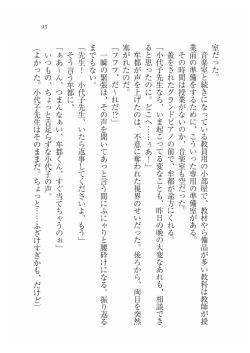 95
室だった。
　音楽室と続きになっている教員用の小部屋で、教材や備品が多い教科は教師が授
業前の準備をするために、こういった専用の準備室がある。
　その時間は授業がないのか、音楽室も空だった。
　蓋をされたグランドピアノの前で、隼都が途方にくれる。
「小代子先生なら、いま起こってる変なことも、昨日の晩の大変なあれも、相談でき
ると思ったのに。どこへ……うぁ！」
　隼都が声を上げたのは、不意に奪われた視界のせいだった。後ろから、両目を突然
塞がれたのだ。
「フフフ、だ～れだ!?」
　一瞬の緊張は、その声を聞いてあっと言う間にふにゃりと腰砕けになる。振り返る
までもない。
「先生！　小代子先生、いたら返事してくださいよ、もう」
　そう言う隼都に、
「ああ～ん、つまんなぁい、隼都くん、すぐ当てちゃうのぉ」
　いつもの、ちょっと舌足らずな小代子の声。
（よかった。小代子先生はそのままだ。ちょっと……ふざけすぎかも、だけど）